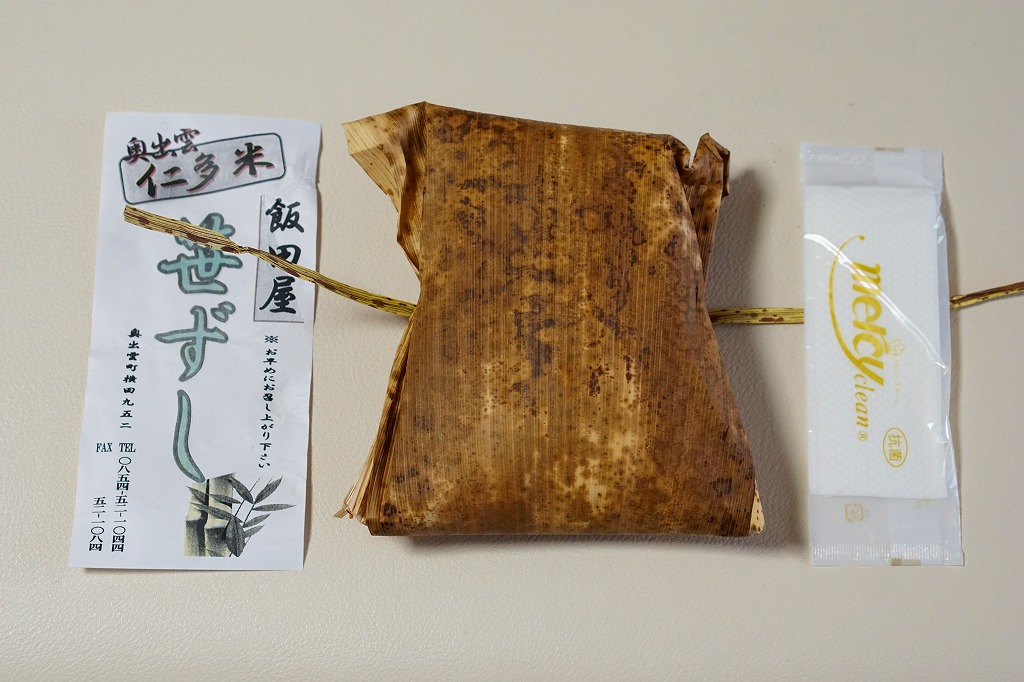 奥出雲
仁多米
飯田屋
笹ずし
※お早めにお召し上がり下さい
奥出雲町横田九五二
TEL 〇八五四-五二-一〇四四
FAX 五二-一〇八四
mercy
clean®
抗菌